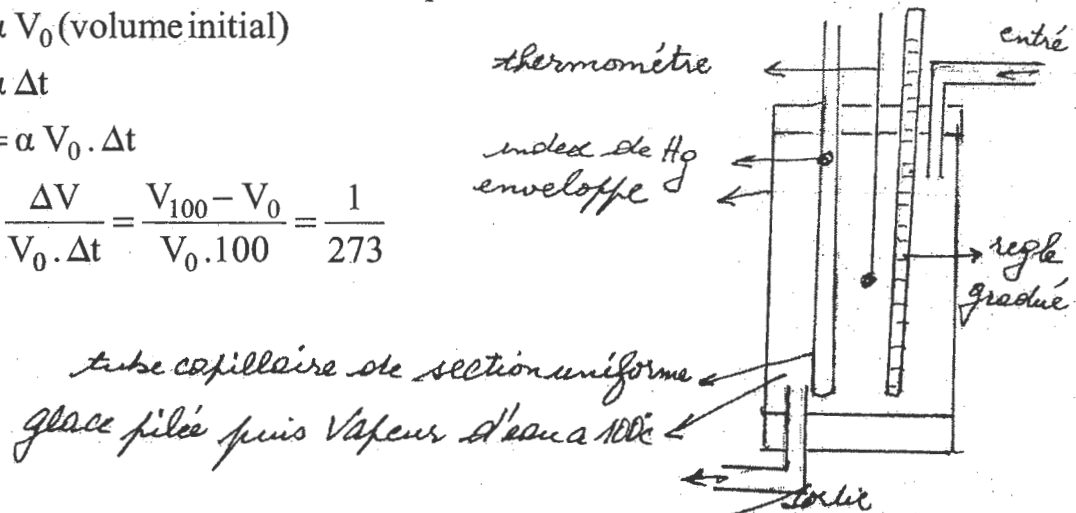 α V₀ (volume initial)
α Δt
= α V₀ . Δt
ΔV / V₀ . Δt = V₁₀₀ − V₀ / V₀ . 100 = 1 / 273
entré
thermométre
index de Hg
enveloppe
regle
gradué
tube capillaire de section uniforme
glace pilée puis Vapeur d'eau a 100c
sortie